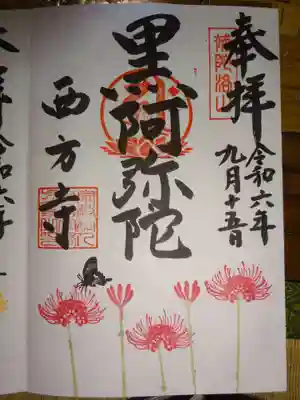 奉拝
令和六年
九月十五日
補陀洛山
黒阿弥陀
西方寺